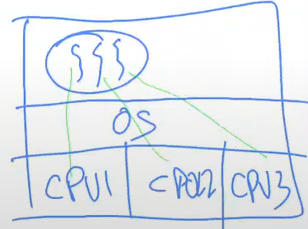 OS
CPU1 CPU2 CPU3